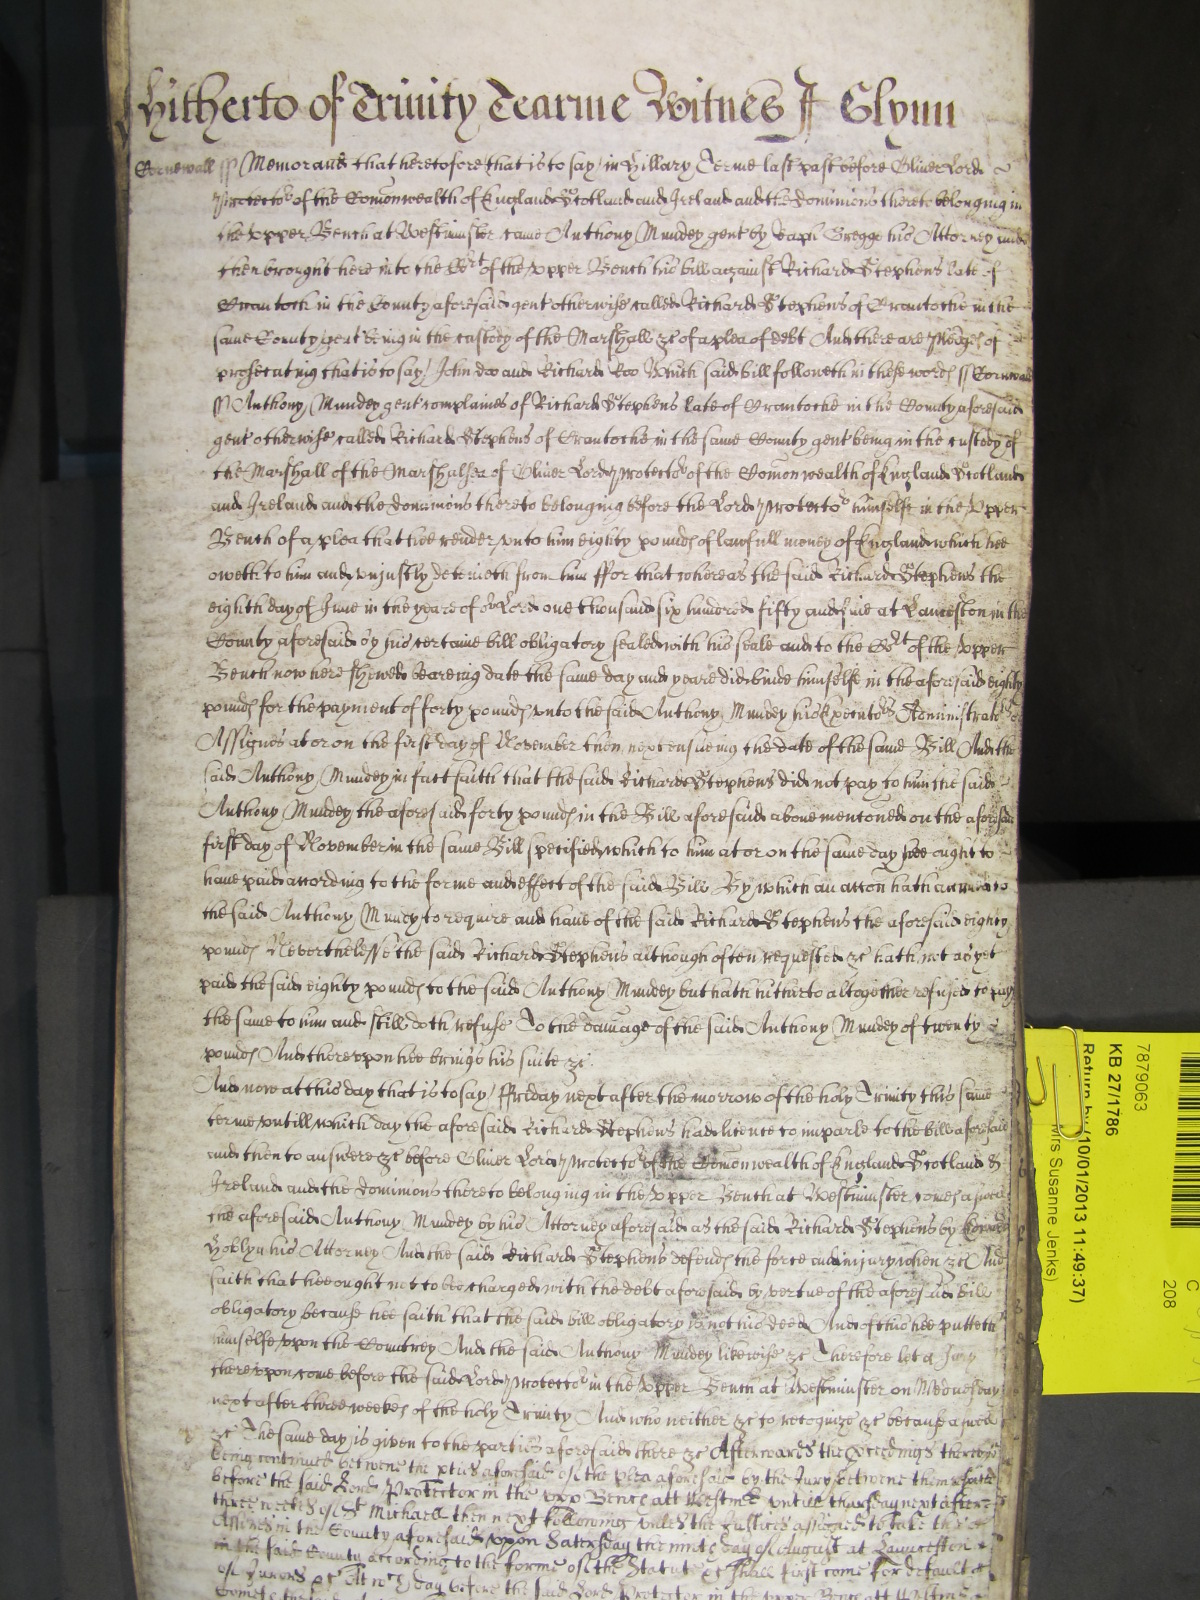 Hitherto of Trinity Tearme Witnes J Glynn
Cornewall ss Memorand that heretofore that is to say in Hillary Terme last past before Oliver Lord
Protector of the Comonwealth of England Scotland and Ireland and the Dominions thereto belonging in
the upper Bench at Westminster came Anthony Mundey gent by Gregge his Attorney and
then brought here into the Cort of the upper Bench his bill against Richard Stephens late of
Crantock in the County aforesaid gent otherwise called Richard Stephens of Crantocke in the
same County gent being in the custody of the Marshall &c of a plea of debt And there are pledges of
prosecuting that is to say John doo and Richard Roo Which said bill followeth in these words ss Cornwall
ss Anthony Mundey gent complaines of Richard Stephens late of Crantocke in the County aforesaid
gent otherwise called Richard Stephens of Crantocke in the same County gent being in the custody of
the Marshall of the Marshalsea of Oliver Lord Protector of the Comon wealth of England Scotland
and Ireland and the dominions thereto belonging before the Lord Protector himselfe in the upper
Bench of a plea that hee render unto him eighty pounds of lawfull money of England which hee
oweth to him and unjustly deteineth from him ffor that whereas the said Richard Stephens the
eighth day of June in the yeare of or Lord one thousand six hundred fifty and five at Lanceston in the
County aforesaid by his certaine bill obligatory sealed with his seale and to the Cort of the upper
Bench now here shewed beareing date the same day and yeare did binde himselfe in the aforesaid eighty
pounds for the payment of forty pounds unto the said Anthony Mundey his Executors Administrators or
Assignes at or on the first day of November then next ensueing the date of the same Bill And the
said Anthony Mundey in fact saith that the said Richard Stephens did not pay to him the said
Anthony Mundey the aforesaid forty pounds in the Bill aforesaid above mentoned on the aforesaid
first day of November in the same Bill specified which to him at or on the same day hee ought to
have paid according to the forme and effect of the said Bill By which an accon hath accrued to
the said Anthony Mundy to require and have of the said Richard Stephens the aforesaid eighty
pounds Neverthelesse the said Richard Stephens although often requested &c hath not as yet
paid the said eighty pounds to the said Anthony Mundey but hath hitherto altogether refused to pay
the same to him and still doth refuse To the damage of the said Anthony Mundey of twenty
pounds And thereupon hee brings his suite &c
And now at this day that is to say ffriday next after the morrow of the holy Trinity this same
terme untill which day the aforesaid Richard Stephens had licence to imparle to the bill aforesaid
and then to answere &c before Oliver Lord Protector of the Comonwealth of England Scotland &
Ireland and the dominions thereto belonging in the upper Bench at Westminster comes aswell
the aforesaid Anthony Mundey by his Attorney aforesaid as the said Richard Stephens by Edward
Hoblyn his Attorney And the said Richard Stephens defends the force and injury when &c And
saith that hee ought not to bee charged with the debt aforesaid by vertue of the aforesaid bill
obligatory because hee saith that the said bill obligatory is not his deed And of this hee putteth
himselfe upon the Countrey And the said Anthony Mundey likewise &c Therefore let a Jury
thereupon come before the said Lord Protector in the upper Bench at Westminster on Wednesday
next after three weekes of the holy Trinity And who neither &c to recognize &c because aswell
&c The same day is given to the parties aforesaid there &c Afterwards the pceedings thereupon
being continued betwene the pties aforesaid of the plea aforesaid by the Jury betwene them
before the said Lord Protector in the upp Bench att Westmr untill thursday next after
three weekes of St Michael then next following unles the Justices assigned to take the
Assizes in the County aforesaid upon Satersday the day of August at Launceston
in the said County according to the forme of the Statute &c shall first come for default
of Jurors &c At wch day before the said Lord Protector in the upper Bench att Westmr
7879063
KB 27/1786
Return by (10/01/2013 11:49:37)
Mrs Susanne Jenks)
C
208